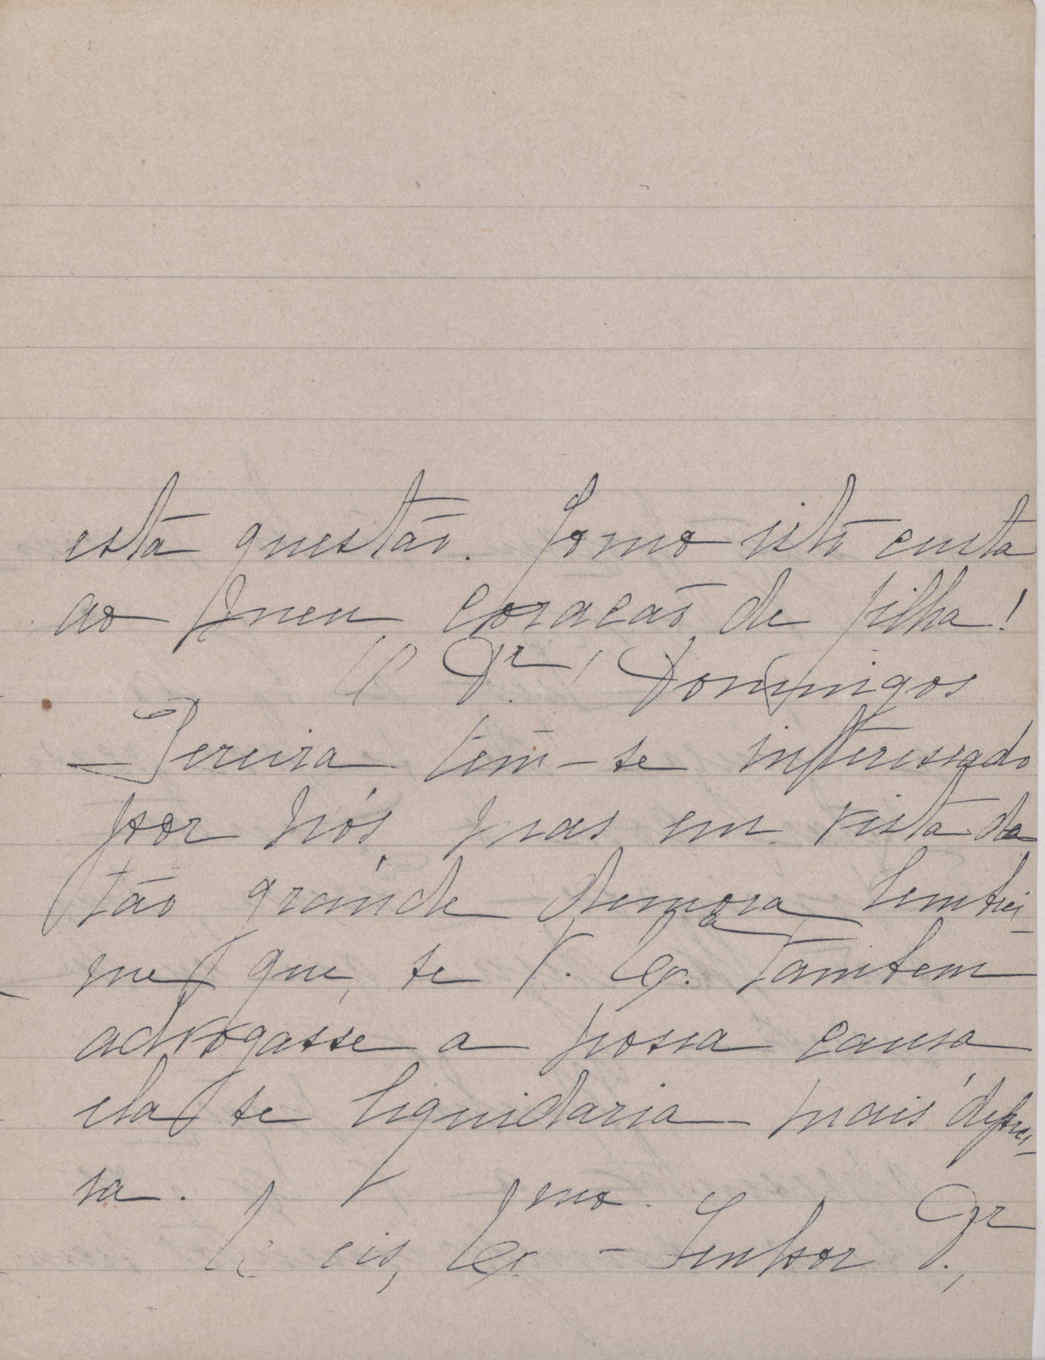 está questão. Como isto custa
ao meu coração de filha!
O Dr. Domingos
Pereira tem-se interessado
por nós, mas em vista da
tão grande demora lembrei-
me que, se V. Exª. tambem
advogasse a nossa causa
ela se liquidaria mais depres-
sa.
E eis, Exmo. Senhor Dr.,